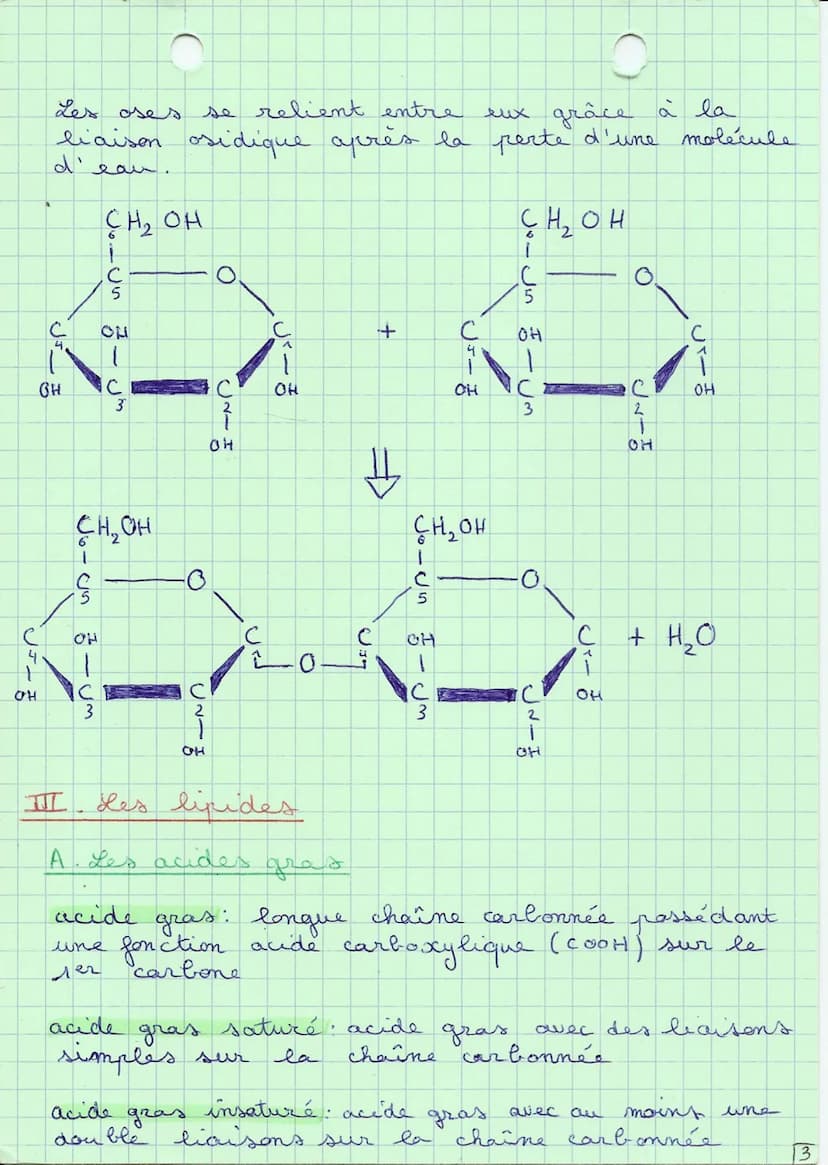 Les oses se relient entre eux grâce à la
liaison osidique après la perte d'une molécule
d'eau.
CH2 OH CH2 OH
6 6
C O C O
5 5
C OH C + C OH C
4 1 4 1
OH C C OH OH C C OH
3 2 3 2
OH OH
CH2OH CH2OH
6 6
C O C O
5 5
C OH C C OH C + H2O
4 1 O 4 1
OH C C C C OH
3 2 3 2
OH OH
III. Les lipides
A. Les acides gras
acide gras: longue chaîne carbonnée possédant
une fonction acide carboxylique (COOH) sur le
1er carbone
acide gras saturé: acide gras avec des liaisons
simples sur la chaîne carbonnée
acide gras insaturé: acide gras avec au moins une
double liaisons sur la chaîne carbonnée
3